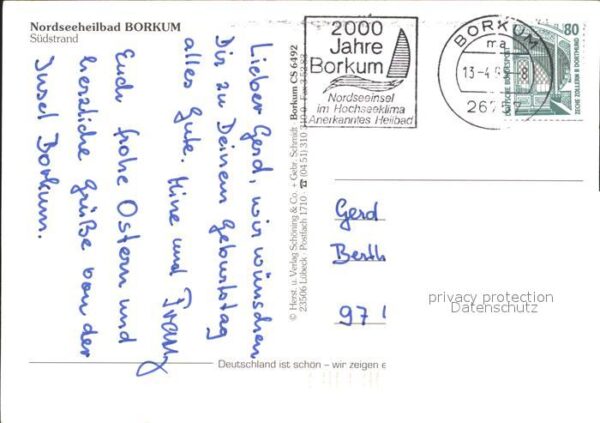 Nordseeheilbad BORKUM
Südstrand
Lieber Gerd, wir wünschen
Dir zu Deinem Geburtstag
alles Gute. Mine und Franz
Euch frohe Ostern und
herzliche Grüße von der
Insel Borkum.
© Herst. u. Verlag Schöning & Co. + Gebr. Schmidt Borkum CS 6492
23506 Lübeck · Postfach 1710
2000
Jahre
Borkum
Nordseeinsel
im Hochseeklima
Anerkanntes Heilbad
BORKUM
ma
26757
80
DEUTSCHE BUNDESPOST
ZECHE ZOLLERN II DORTMUND
Gerd
Berth
97
privacy protection
Datenschutz
Deutschland ist schön – wir zeigen e